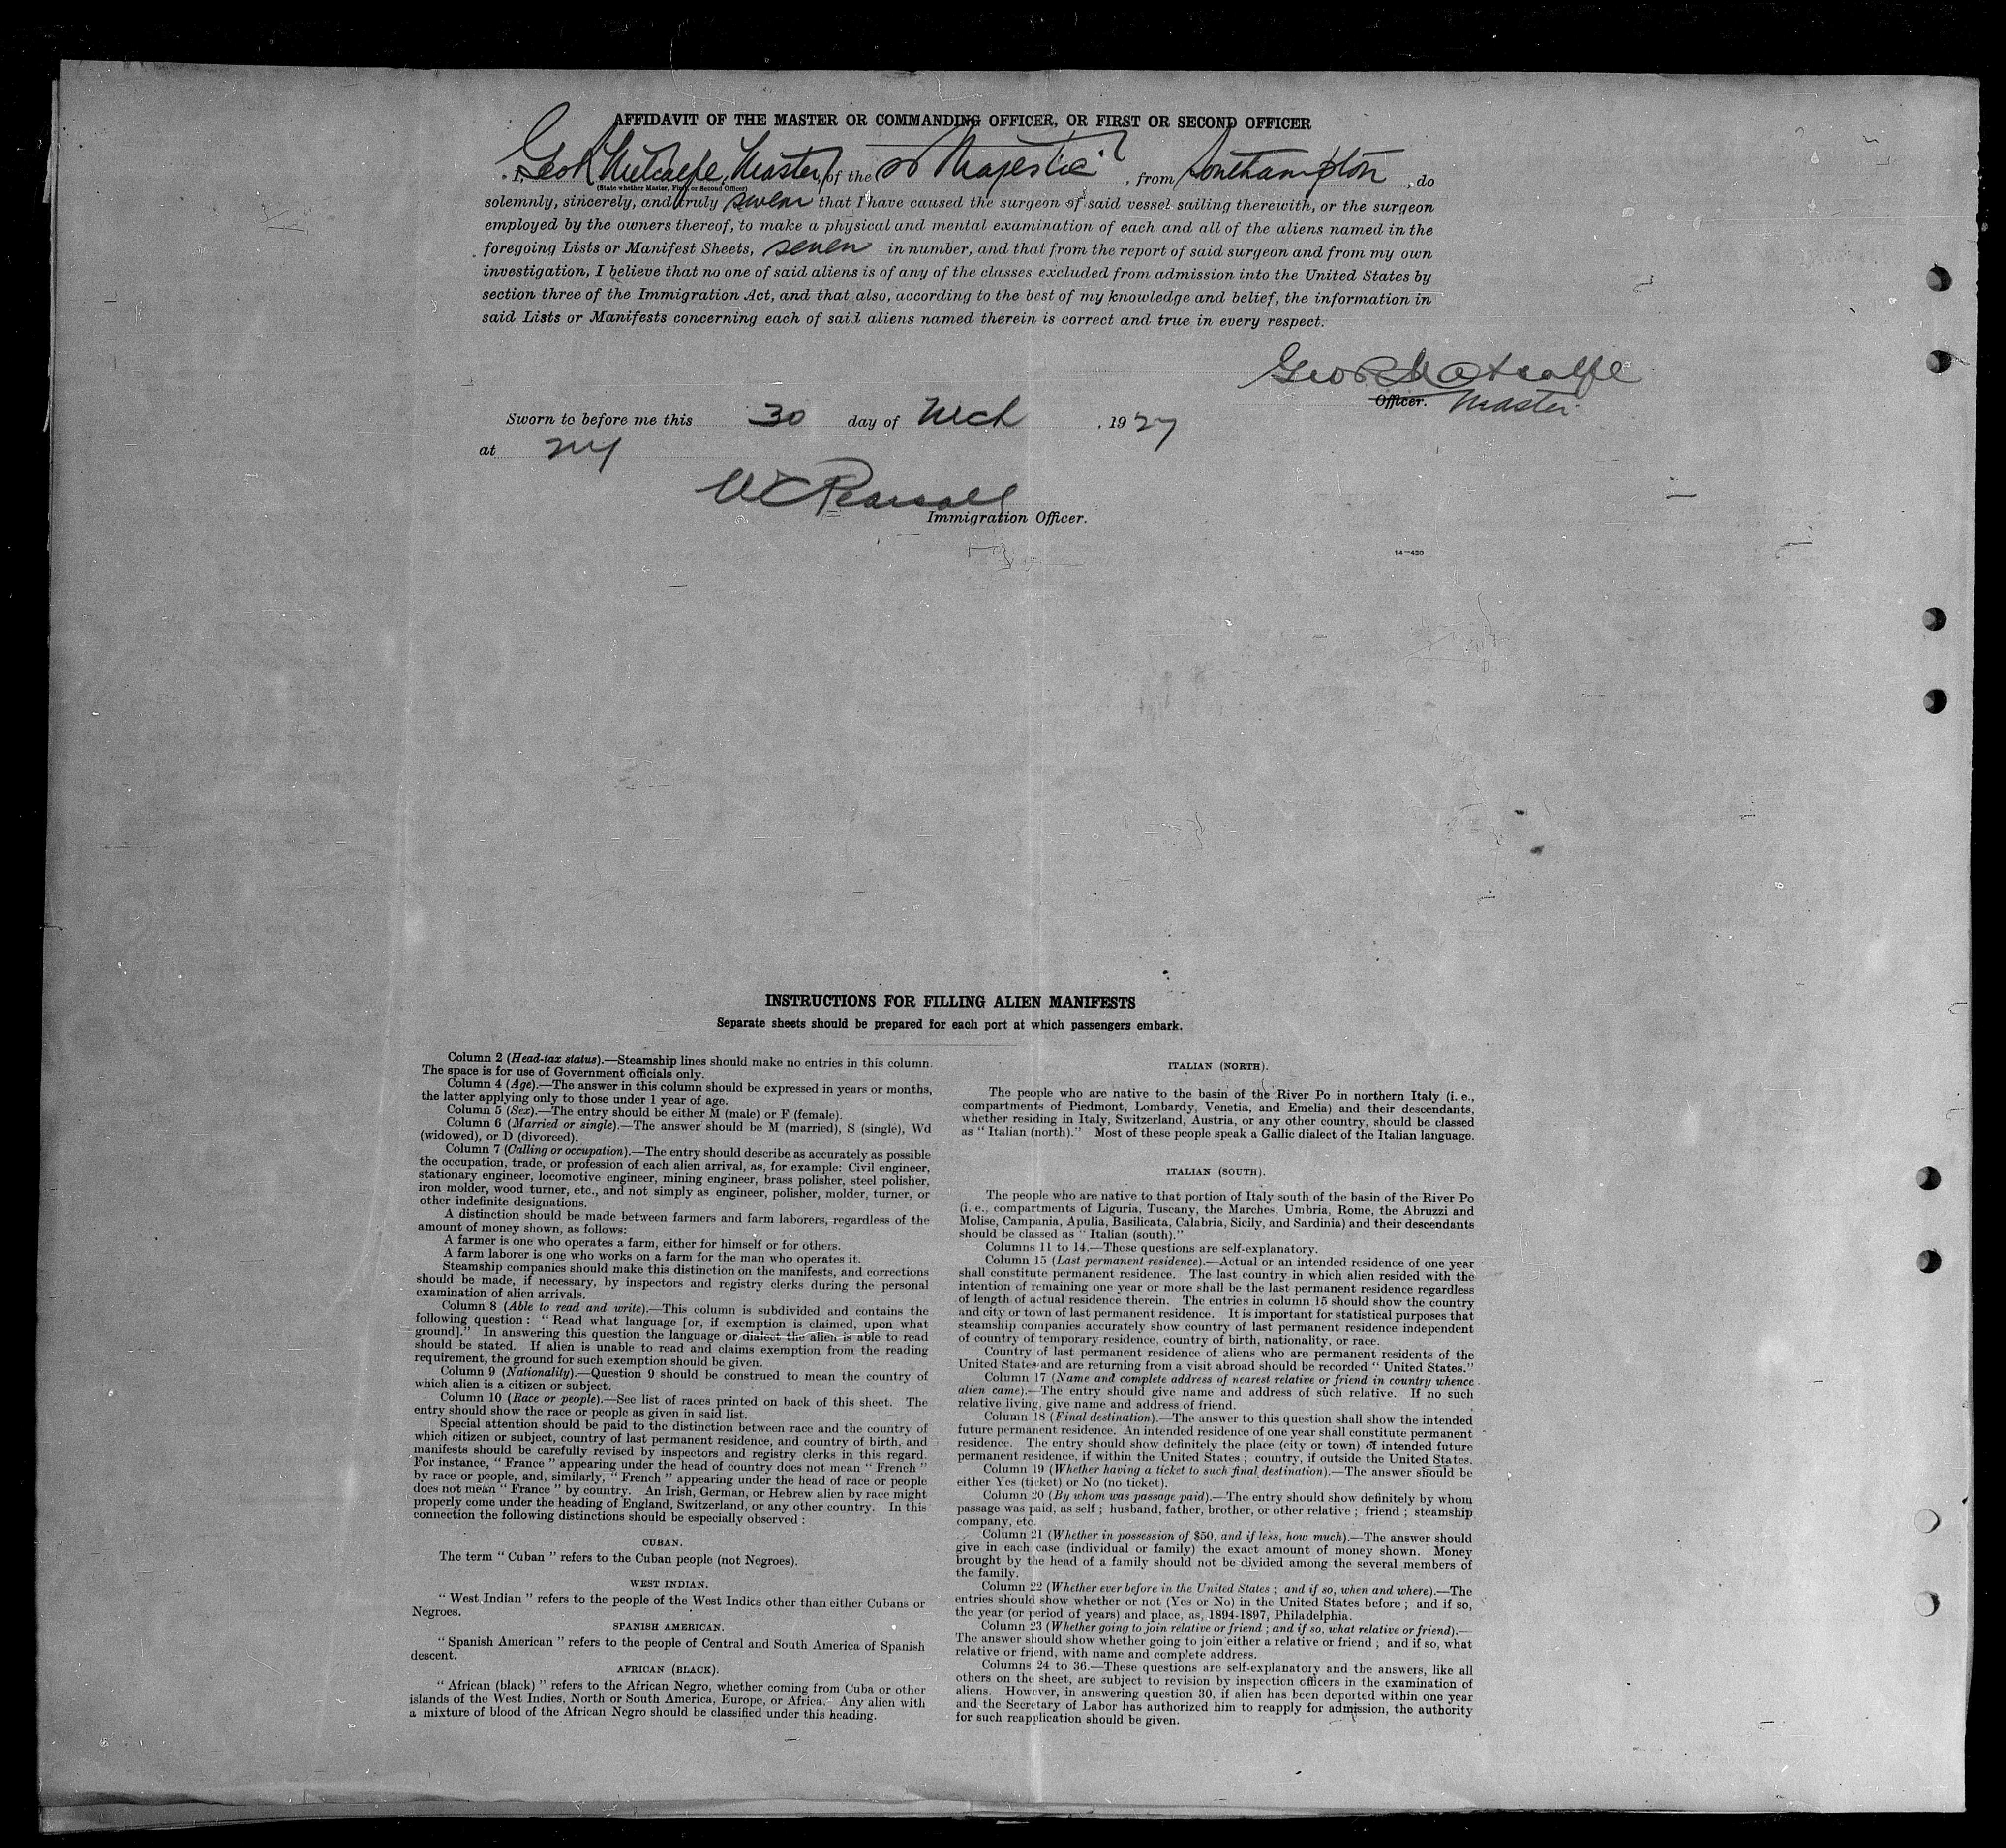 AFFIDAVIT OF THE MASTER OR COMMANDING OFFICER, OR FIRST OR SECOND OFFICER
I, Geo R Metcalfe, Master, of the SS "Majestic", from Southampton, do
(State whether Master, First, or Second Officer)
solemnly, sincerely, and truly swear that I have caused the surgeon of said vessel sailing therewith, or the surgeon
employed by the owners thereof, to make a physical and mental examination of each and all of the aliens named in the
foregoing Lists or Manifest Sheets, seven in number, and that from the report of said surgeon and from my own
investigation, I believe that no one of said aliens is of any of the classes excluded from admission into the United States by
section three of the Immigration Act, and that also, according to the best of my knowledge and belief, the information in
said Lists or Manifests concerning each of said aliens named therein is correct and true in every respect.
Geo R Metcalfe
Officer. Master
Sworn to before me this 30 day of Mch, 1927
at NY
W C Pearsall
Immigration Officer.
14-430
INSTRUCTIONS FOR FILLING ALIEN MANIFESTS
Separate sheets should be prepared for each port at which passengers embark.
Column 2 (Head-tax status).—Steamship lines should make no entries in this column.
The space is for use of Government officials only.
Column 4 (Age).—The answer in this column should be expressed in years or months,
the latter applying only to those under 1 year of age.
Column 5 (Sex).—The entry should be either M (male) or F (female).
Column 6 (Married or single).—The answer should be M (married), S (single), Wd
(widowed), or D (divorced).
Column 7 (Calling or occupation).—The entry should describe as accurately as possible
the occupation, trade, or profession of each alien arrival, as, for example: Civil engineer,
stationary engineer, locomotive engineer, mining engineer, brass polisher, steel polisher,
iron molder, wood turner, etc., and not simply as engineer, polisher, molder, turner, or
other indefinite designations.
A distinction should be made between farmers and farm laborers, regardless of the
amount of money shown, as follows:
A farmer is one who operates a farm, either for himself or for others.
A farm laborer is one who works on a farm for the man who operates it.
Steamship companies should make this distinction on the manifests, and corrections
should be made, if necessary, by inspectors and registry clerks during the personal
examination of alien arrivals.
Column 8 (Able to read and write).—This column is subdivided and contains the
following question: "Read what language [or, if exemption is claimed, upon what
ground]." In answering this question the language or dialect the alien is able to read
should be stated. If alien is unable to read and claims exemption from the reading
requirement, the ground for such exemption should be given.
Column 9 (Nationality).—Question 9 should be construed to mean the country of
which alien is a citizen or subject.
Column 10 (Race or people).—See list of races printed on back of this sheet. The
entry should show the race or people as given in said list.
Special attention should be paid to the distinction between race and the country of
which citizen or subject, country of last permanent residence, and country of birth, and
manifests should be carefully revised by inspectors and registry clerks in this regard.
For instance, "France" appearing under the head of country does not mean "French"
by race or people, and, similarly, "French" appearing under the head of race or people
does not mean "France" by country. An Irish, German, or Hebrew alien by race might
properly come under the heading of England, Switzerland, or any other country. In this
connection the following distinctions should be especially observed:
CUBAN.
The term "Cuban" refers to the Cuban people (not Negroes).
WEST INDIAN.
"West Indian" refers to the people of the West Indies other than either Cubans or
Negroes.
SPANISH AMERICAN.
"Spanish American" refers to the people of Central and South America of Spanish
descent.
AFRICAN (BLACK).
"African (black)" refers to the African Negro, whether coming from Cuba or other
islands of the West Indies, North or South America, Europe, or Africa. Any alien with
a mixture of blood of the African Negro should be classified under this heading.
ITALIAN (NORTH).
The people who are native to the basin of the River Po in northern Italy (i. e.,
compartments of Piedmont, Lombardy, Venetia, and Emelia) and their descendants,
whether residing in Italy, Switzerland, Austria, or any other country, should be classed
as "Italian (north)." Most of these people speak a Gallic dialect of the Italian language.
ITALIAN (SOUTH).
The people who are native to that portion of Italy south of the basin of the River Po
(i. e., compartments of Liguria, Tuscany, the Marches, Umbria, Rome, the Abruzzi and
Molise, Campania, Apulia, Basilicata, Calabria, Sicily, and Sardinia) and their descendants
should be classed as "Italian (south)."
Columns 11 to 14.—These questions are self-explanatory.
Column 15 (Last permanent residence).—Actual or an intended residence of one year
shall constitute permanent residence. The last country in which alien resided with the
intention of remaining one year or more shall be the last permanent residence regardless
of length of actual residence therein. The entries in column 15 should show the country
and city or town of last permanent residence. It is important for statistical purposes that
steamship companies accurately show country of last permanent residence independent
of country of temporary residence, country of birth, nationality, or race.
Country of last permanent residence of aliens who are permanent residents of the
United States and are returning from a visit abroad should be recorded "United States."
Column 17 (Name and complete address of nearest relative or friend in country whence
alien came).—The entry should give name and address of such relative. If no such
relative living, give name and address of friend.
Column 18 (Final destination).—The answer to this question shall show the intended
future permanent residence. An intended residence of one year shall constitute permanent
residence. The entry should show definitely the place (city or town) of intended future
permanent residence, if within the United States; country, if outside the United States.
Column 19 (Whether having a ticket to such final destination).—The answer should be
either Yes (ticket) or No (no ticket).
Column 20 (By whom was passage paid).—The entry should show definitely by whom
passage was paid, as self; husband, father, brother, or other relative; friend; steamship
company, etc.
Column 21 (Whether in possession of $50, and if less, how much).—The answer should
give in each case (individual or family) the exact amount of money shown. Money
brought by the head of a family should not be divided among the several members of
the family.
Column 22 (Whether ever before in the United States; and if so, when and where).—The
entries should show whether or not (Yes or No) in the United States before; and if so,
the year (or period of years) and place, as, 1894-1897, Philadelphia.
Column 23 (Whether going to join relative or friend; and if so, what relative or friend).—
The answer should show whether going to join either a relative or friend; and if so, what
relative or friend, with name and complete address.
Columns 24 to 36.—These questions are self-explanatory and the answers, like all
others on the sheet, are subject to revision by inspection officers in the examination of
aliens. However, in answering question 30, if alien has been deported within one year
and the Secretary of Labor has authorized him to reapply for admission, the authority
for such reapplication should be given.